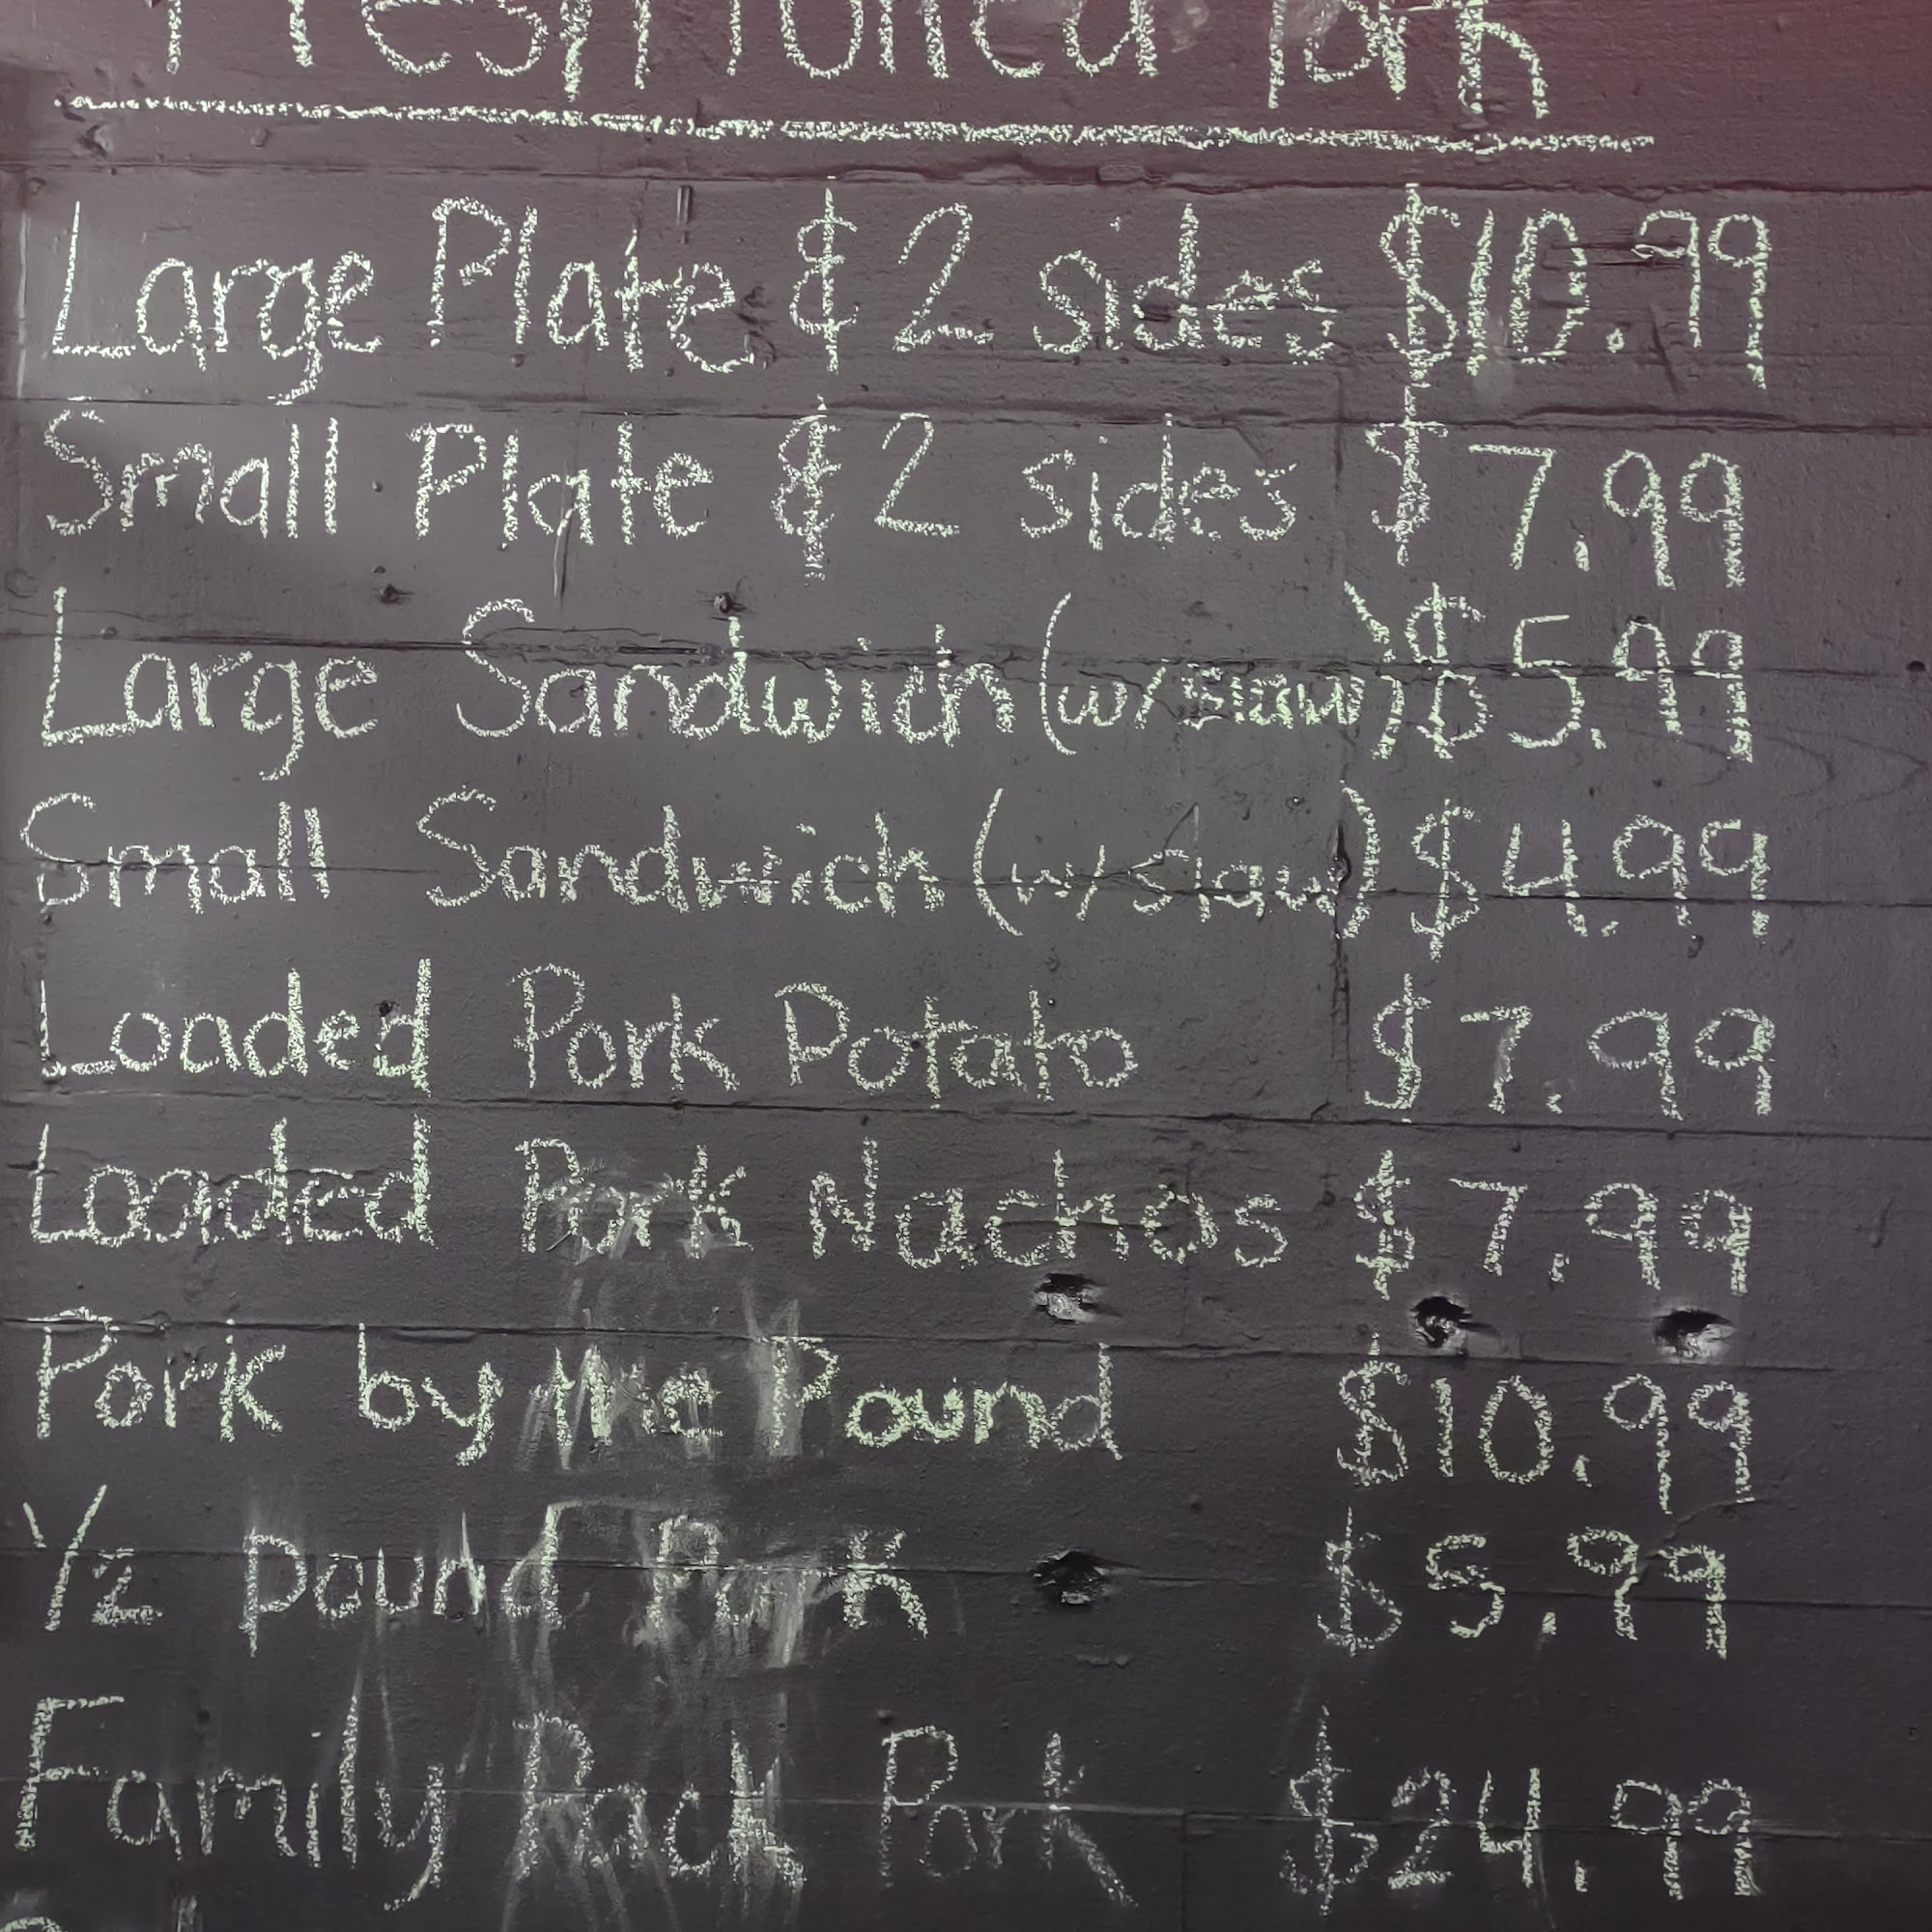 Fresh Pulled Pork
Large Plate & 2 sides $10.99
Small Plate & 2 sides $7.99
Large Sandwich (w/ Slaw) $5.99
Small Sandwich (w/ Slaw) $4.99
Loaded Pork Potato $7.99
Loaded Pork Nachos $7.99
Pork by the Pound $10.99
1/2 pound Pork $5.99
Family Pack Pork $24.99